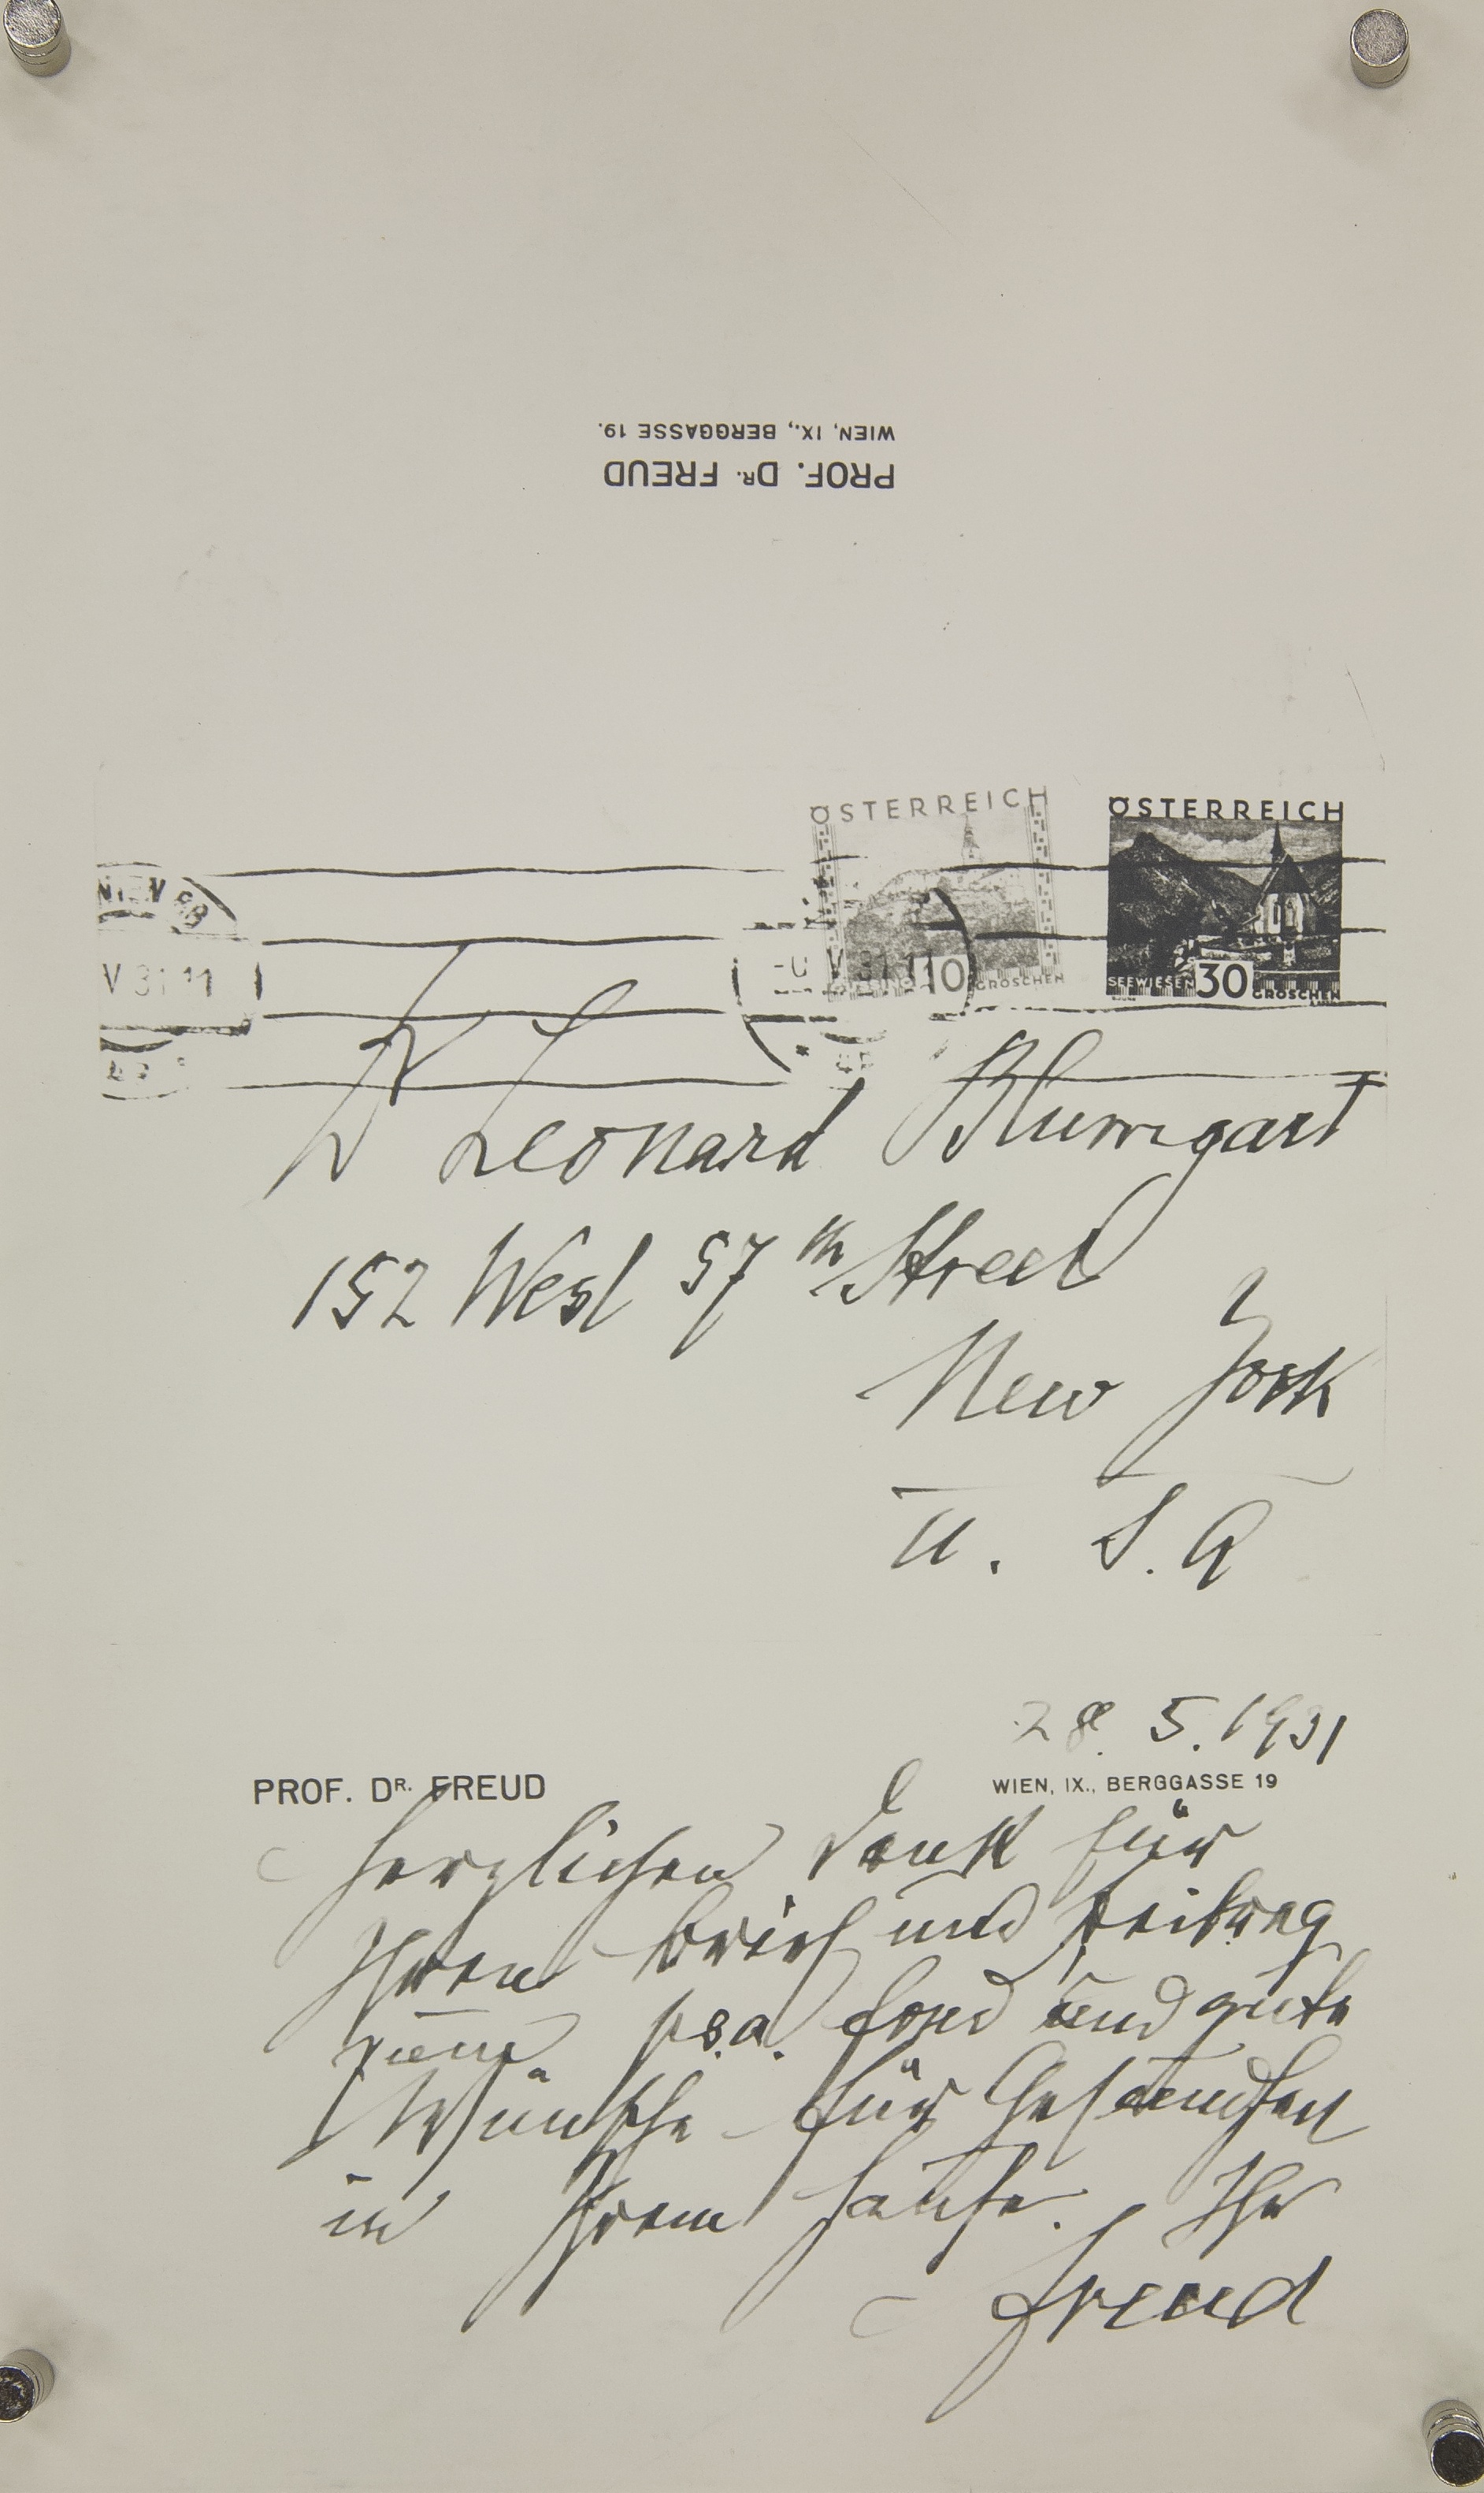 PROF. DR. FREUD
WIEN, IX., BERGGASSE 19.
ÖSTERREICH
10 GROSCHEN
ÖSTERREICH
SEEWIESEN 30 GROSCHEN
WIEN
V 31 11
V 31 11
Dr Leonard Blumgart
152 West 57th Street
New York
U. S. A
28. 5. 1931
PROF. DR. FREUD WIEN, IX., BERGGASSE 19
Herzlichen Dank für
Ihren Brief und Beitrag
zum ps.a. fond und gute
Wünsche für Gesundheit
in Ihrem Hause. Ihr
Freud